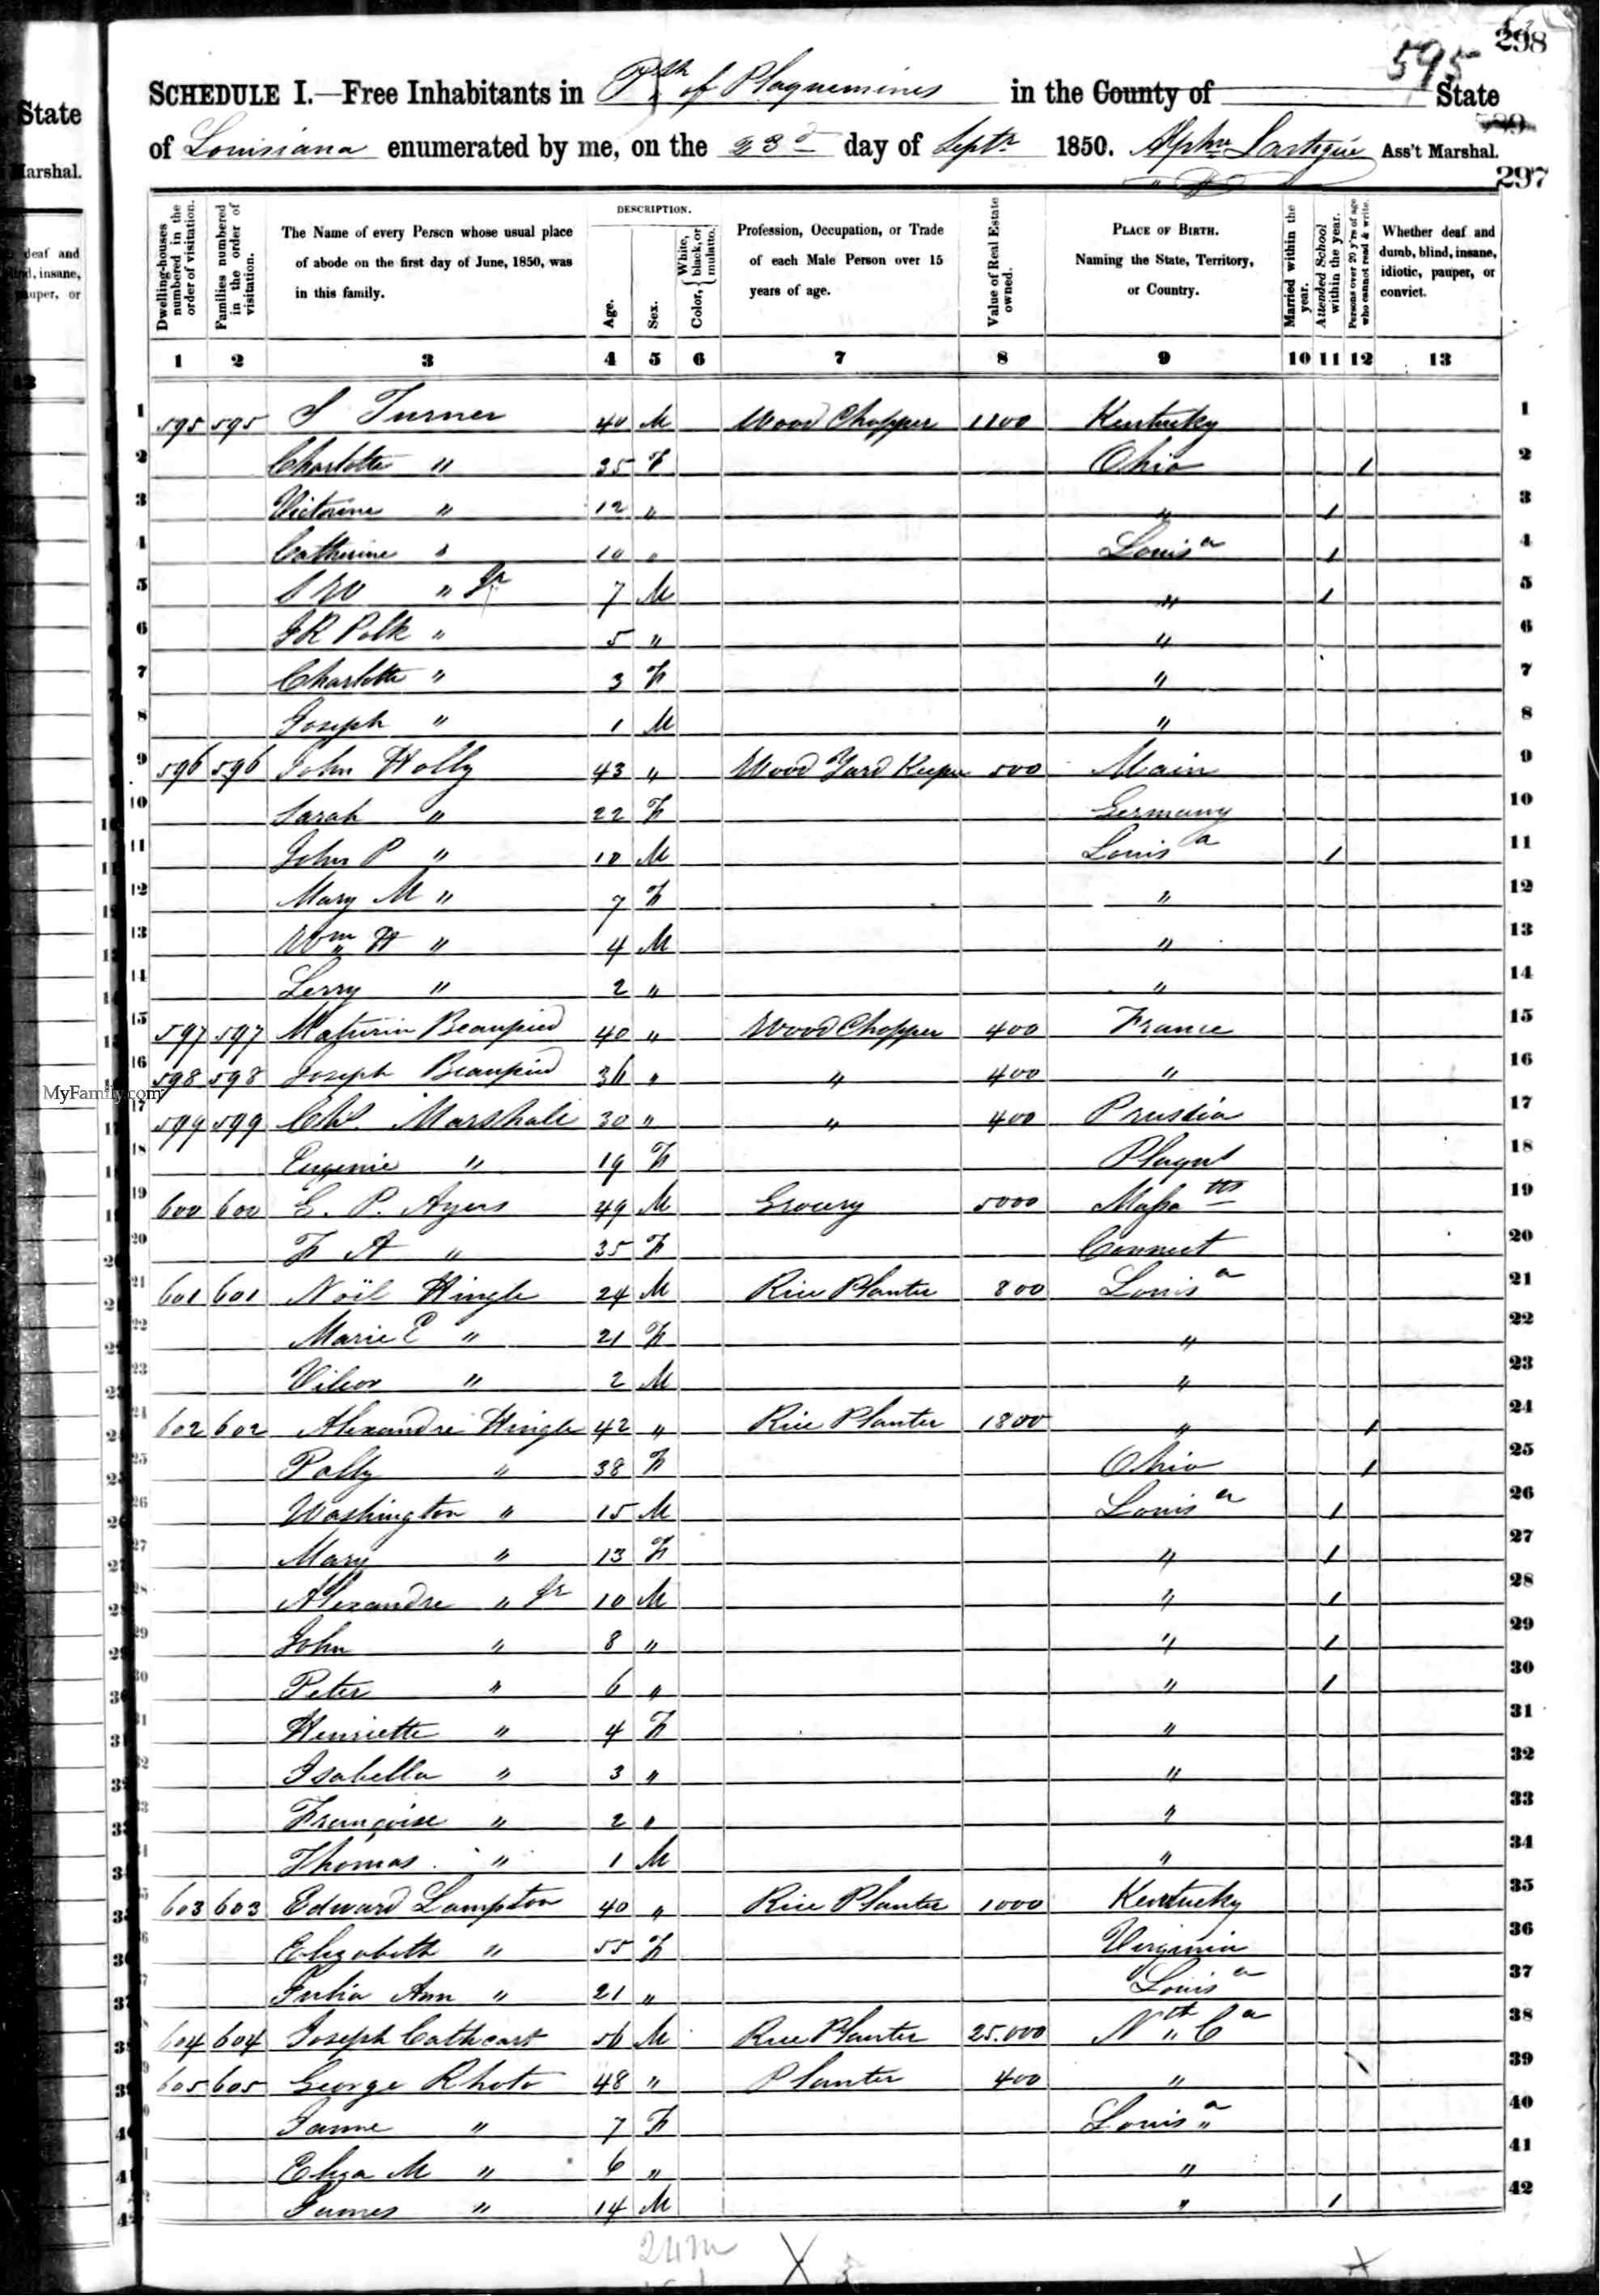 298
595
SCHEDULE I.—Free Inhabitants in Psh of Plaquemines in the County of State
of Louisiana enumerated by me, on the 23d day of Septr 1850. Ass't Marshal.
297
State
Marshal.
deaf and
insane,
pauper, or
Dwelling-houses numbered in the order of visitation.
Families numbered in the order of visitation.
The Name of every Person whose usual place of abode on the first day of June, 1850, was in this family.
DESCRIPTION.
Age.
Sex.
Color, { White, black, or mulatto.
Profession, Occupation, or Trade of each Male Person over 15 years of age.
Value of Real Estate owned.
PLACE OF BIRTH. Naming the State, Territory, or Country.
Married within the year.
Attended School within the year.
Persons over 20 y'rs of age who cannot read & write.
Whether deaf and dumb, blind, insane, idiotic, pauper, or convict.
1 2 3 4 5 6 7 8 9 10 11 12 13
1 595 595 S Turner 40 M Wood Chopper 1100 Kentucky 1
2 Charlotte " 35 F Ohio 1 2
3 Victorine " 12 " " 1 3
4 Catherine " 10 " Louisa 1 4
5 S W " Jr 7 M " 1 5
6 J K Polk " 5 " " 6
7 Charlotte " 3 F " 7
8 Joseph " 1 M " 8
9 596 596 John Holly 43 " Wood Yard Keeper 500 Main 9
10 Sarah " 22 F Germany 10
11 John P " 10 M Louisa 1 11
12 Mary M " 7 F " 12
13 Wm H " 4 M " 13
14 Lerry " 2 " " 14
15 597 597 Maturin Beaupied 40 " Wood Chopper 400 France 15
16 598 598 Joseph Beaupied 36 " " 400 " 16
MyFamily.com
17 599 599 Chs. Marshall 30 " " 400 Prussia 17
18 Eugenie " 19 F Plaqus 18
19 600 600 E. P. Ayers 49 M Grocery 5000 Massatts 19
20 F A " 35 F Connect 20
21 601 601 Noël Hingle 24 M Rice Planter 800 Louisa 21
22 Marie E " 21 F " 22
23 " 2 M " 23
24 602 602 Alexandre Hingle 42 " Rice Planter 1800 " 1 24
25 Polly " 38 F Ohio 1 25
26 Washington " 15 M Louisa 1 26
27 Mary " 13 F " 1 27
28 Alexandre " Jr 10 M " 1 28
29 John " 8 " " 1 29
30 Peter " 6 " " 1 30
31 Henriette " 4 F " 31
32 Isabella " 3 " " 32
33 Françoise " 2 " " 33
34 Thomas " 1 M " 34
35 603 603 Edward Lampton 40 " Rice Planter 1000 Kentucky 35
36 Elizabeth " 55 F Virginia 36
37 Julia Ann " 21 " Louisa 37
38 604 604 Joseph Cathcart 56 M Rice Planter 25.000 Nth Ca 38
39 605 605 George Rhoto 48 " Planter 400 " 39
40 Janne " 7 F Louisa 40
41 Eliza M " 6 " " 41
42 James " 14 M " 1 42
24m